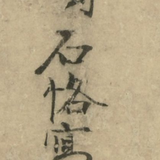 石恪寫